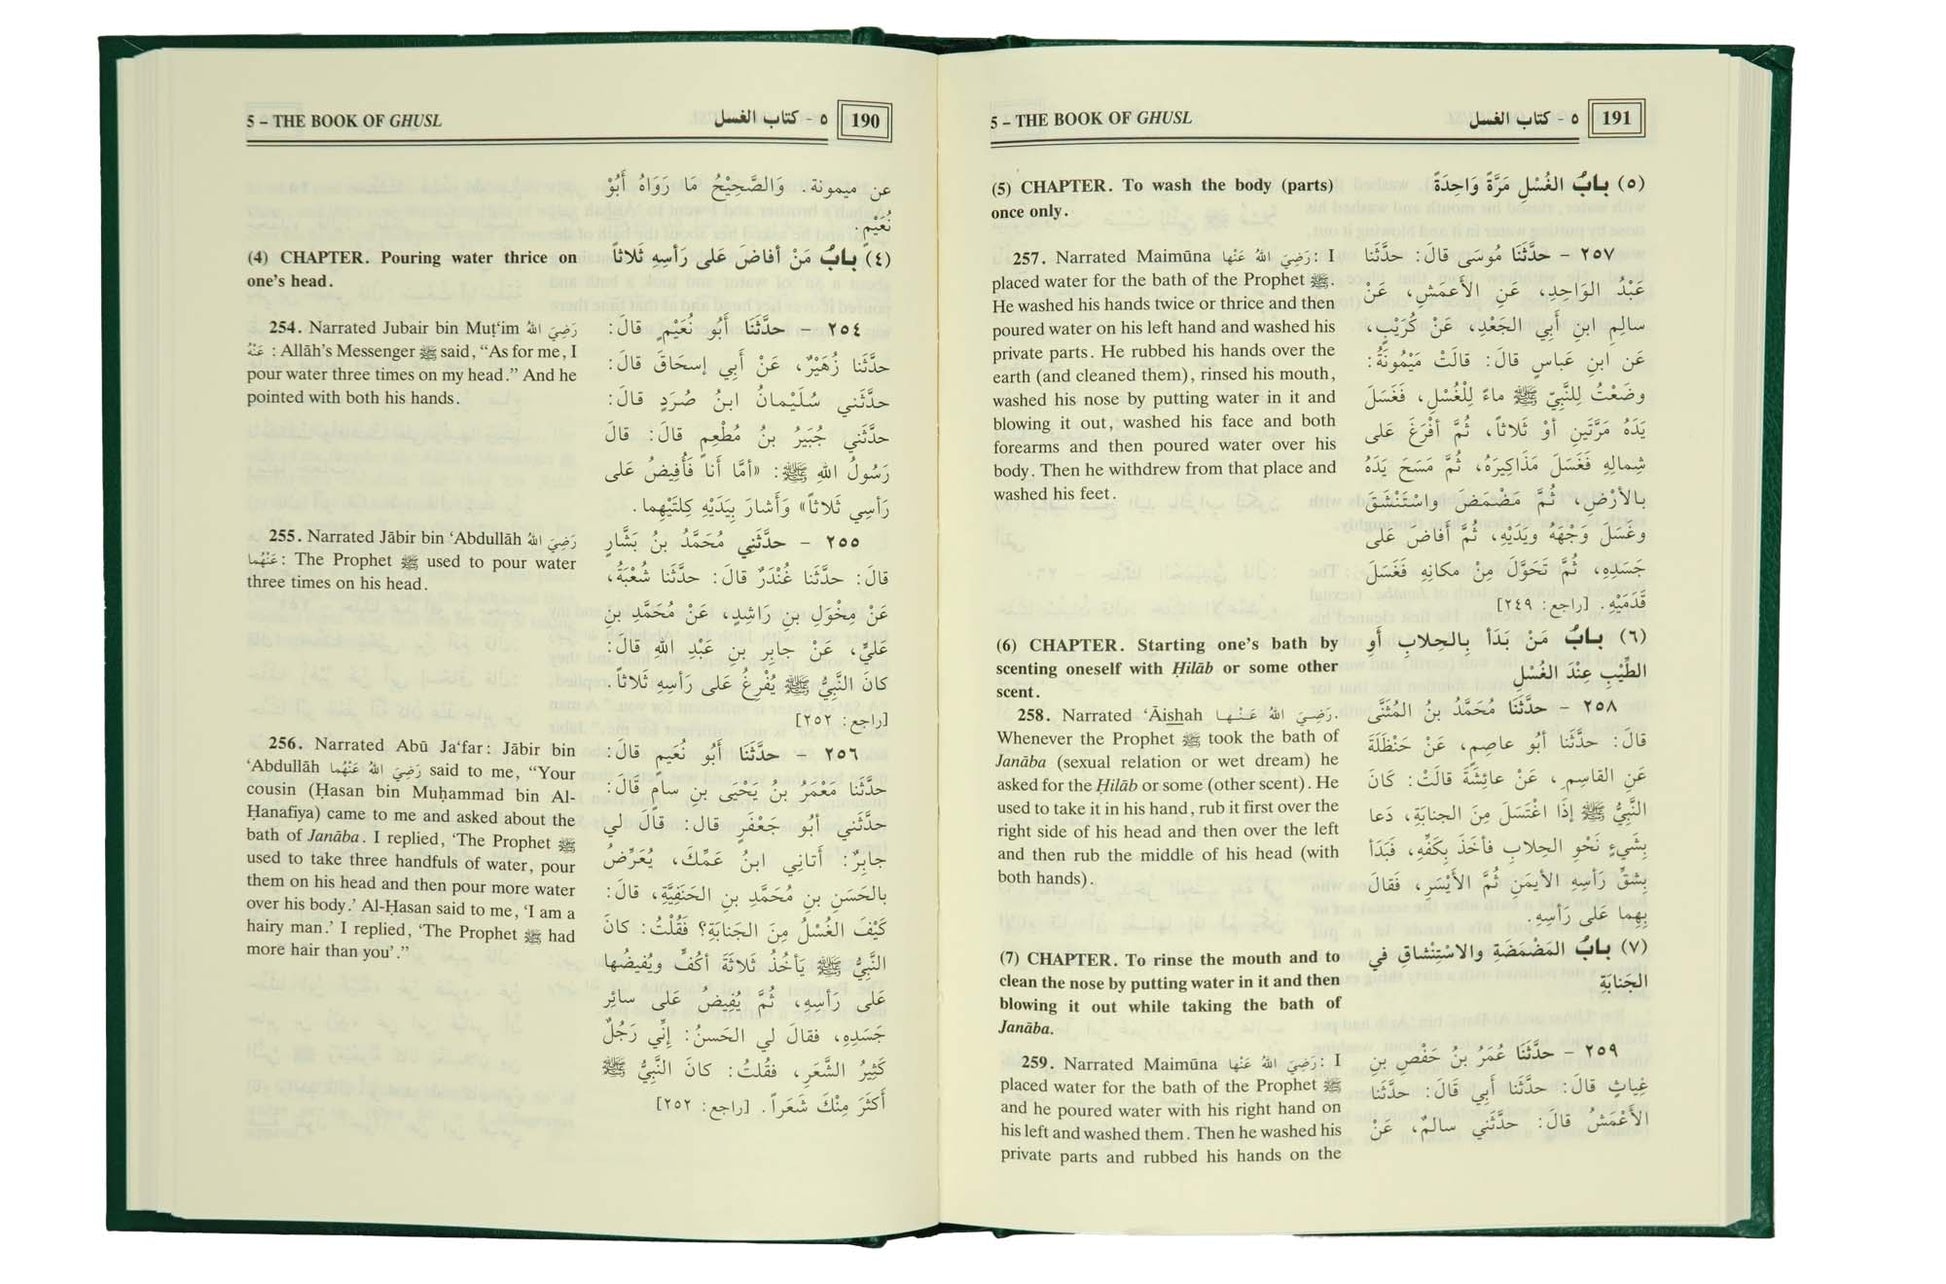 5 – THE BOOK OF GHUSL
٥ - كتاب الغسل
190
عن ميمونة. وَالصَّحِيْحُ مَا رَوَاهُ أَبُوْ
نُعَيْمٍ.
(4) CHAPTER. Pouring water thrice on
one's head.
(٤) بابُ مَنْ أفاضَ عَلى رَأسِهِ ثَلاثاً
254. Narrated Jubair bin Muṭ‘im رَضِيَ اللهُ
عَنْهُ : Allāh's Messenger ﷺ said, “As for me, I
pour water three times on my head.” And he
pointed with both his hands.
٢٥٤ - حدَّثَنَا أَبُو نُعَيْمٍ قالَ:
حدَّثَنا زُهَيْرٌ، عَنْ أبي إسحَاقَ قالَ:
حدَّثَني سُلَيْمانُ ابنُ صُرَدٍ قالَ:
حدَّثَني جُبَيَرُ بنُ مُطْعِمٍ قالَ: قالَ
رَسُولُ اللهِ ﷺ: «أمَّا أنا فَأُفِيضُ عَلى
رَأسِي ثَلاثاً» وَأشارَ بِيَدَيْهِ كِلتَيْهِما.
255. Narrated Jābir bin ‘Abdullāh رَضِيَ اللهُ
عَنْهُما: The Prophet ﷺ used to pour water
three times on his head.
٢٥٥ - حدَّثَني مُحَمَّدُ بنُ بَشَّارٍ
قالَ: حدَّثَنا غُنْدَرٌ قالَ: حدَّثَنا شُعْبَةُ،
عَنْ مِخْوَلِ بنِ رَاشِدٍ، عَنْ مُحَمَّدِ بنِ
عَليٍّ، عَنْ جابِرِ بنِ عَبْدِ اللهِ قالَ:
كانَ النَّبيُّ ﷺ يُفْرِغُ عَلى رَأسِهِ ثَلاثاً.
[راجع: ٢٥٢]
256. Narrated Abū Ja‘far: Jābir bin
‘Abdullāh رَضِيَ اللهُ عَنْهُما said to me, “Your
cousin (Ḥasan bin Muḥammad bin Al-
Ḥanafiya) came to me and asked about the
bath of Janāba. I replied, ‘The Prophet ﷺ
used to take three handfuls of water, pour
them on his head and then pour more water
over his body.’ Al-Ḥasan said to me, ‘I am a
hairy man.’ I replied, ‘The Prophet ﷺ had
more hair than you’.”
٢٥٦ - حدَّثَنَا أَبُو نُعَيمٍ قالَ:
حدَّثَنا مَعْمَرُ بنُ يَحْيَى بنِ سامٍ قَالَ:
حدَّثَني أبُو جَعْفَرٍ قال: قالَ لي
جابِرٌ: أَتاني ابنُ عَمِّكَ، يُعَرِّضُ
بالحَسَنِ بنِ مُحَمَّدِ بنِ الحَنَفِيَّةِ، قالَ:
كَيْفَ الغُسْلُ مِنَ الجَنابَةِ؟ فَقُلْتُ: كانَ
النَّبيُّ ﷺ يَأخُذُ ثَلاثَةَ أكُفٍّ ويُفيضُها
عَلى رَأسِهِ، ثُمَّ يُفِيضُ عَلى سائِرِ
جَسَدِهِ، فقالَ لي الحَسنُ: إنِّي رَجُلٌ
كَثِيرُ الشَّعَرِ، فقُلتُ: كانَ النَّبيُّ ﷺ
أكثَرَ مِنْكَ شَعَراً. [راجع: ٢٥٢]
5 – THE BOOK OF GHUSL
٥ - كتاب الغسل
191
(5) CHAPTER. To wash the body (parts)
once only.
(٥) بابُ الغُسْلِ مَرَّةً وَاحِدَةً
257. Narrated Maimūna رَضِيَ اللهُ عَنْها: I
placed water for the bath of the Prophet ﷺ.
He washed his hands twice or thrice and then
poured water on his left hand and washed his
private parts. He rubbed his hands over the
earth (and cleaned them), rinsed his mouth,
washed his nose by putting water in it and
blowing it out, washed his face and both
forearms and then poured water over his
body. Then he withdrew from that place and
washed his feet.
٢٥٧ - حدَّثَنَا مُوسَى قالَ: حدَّثَنا
عَبْدُ الوَاحِدِ، عَنِ الأَعمَشِ، عَنْ
سالِمِ ابنِ أبي الجَعْدِ، عَنْ كُرَيْبٍ،
عَن ابنِ عَباسٍ قالَ: قالَتْ مَيْمُونَةُ:
وضَعْتُ لِلنَّبيِّ ﷺ ماءً لِلْغُسْلِ، فَغَسَلَ
يَدَهُ مَرَّتَينِ أوْ ثَلاثاً، ثُمَّ أفْرَغَ عَلى
شِمالِهِ فَغَسَلَ مَذَاكِيرَهُ، ثُمَّ مَسَحَ يَدَهُ
بالأرْضِ، ثُمَّ مَضْمَضَ واسْتَنْشَقَ
وغَسَلَ وَجْهَهُ ويَدَيْهِ، ثُمَّ أفاضَ عَلى
جَسَدِهِ، ثُمَّ تَحَوَّلَ مِنْ مكانِهِ فَغَسَلَ
قَدَمَيْهِ. [راجع: ٢٤٩]
(6) CHAPTER. Starting one's bath by
scenting oneself with Ḥilāb or some other
scent.
(٦) بابُ مَنْ بَدَأ بِالحِلابِ أوِ
الطِّيْبِ عِنْدَ الغُسْلِ
258. Narrated ‘Āishah رَضِيَ اللهُ عَنْها.
Whenever the Prophet ﷺ took the bath of
Janāba (sexual relation or wet dream) he
asked for the Ḥilāb or some (other scent). He
used to take it in his hand, rub it first over the
right side of his head and then over the left
and then rub the middle of his head (with
both hands).
٢٥٨ - حدَّثَنَا مُحَمَّدُ بنُ المُثَنَّى
قالَ: حدَّثَنا أبُو عاصِمٍ، عَنْ حَنْظَلَةَ
عَنِ القاسِمِ، عَنْ عائِشَةَ قالَتْ: كانَ
النَّبيُّ ﷺ إذَا اغْتَسَلَ مِنَ الجَنابَةِ، دَعا
بِشَيءٍ نَحْوِ الحِلابِ فأخَذَ بِكَفِّهِ، فَبَدَأ
بِشِقِّ رَأسِهِ الأيمَنِ ثُمَّ الأيْسَرِ، فَقالَ
بِهِما عَلى رَأسِهِ.
(7) CHAPTER. To rinse the mouth and to
clean the nose by putting water in it and then
blowing it out while taking the bath of
Janāba.
(٧) بابُ المَضْمَضَةِ والاسْتِنْشاقِ في
الجَنابَةِ
259. Narrated Maimūna رَضِيَ اللهُ عَنْها: I
placed water for the bath of the Prophet ﷺ
and he poured water with his right hand on
his left and washed them. Then he washed his
private parts and rubbed his hands on the
٢٥٩ - حدَّثَنَا عُمَرُ بنُ حَفْصِ بنِ
غِياثٍ قالَ: حدَّثَنا أبي قالَ: حدَّثَنا
الأَعْمَشُ قالَ: حدَّثَني سالمٌ، عَنْ